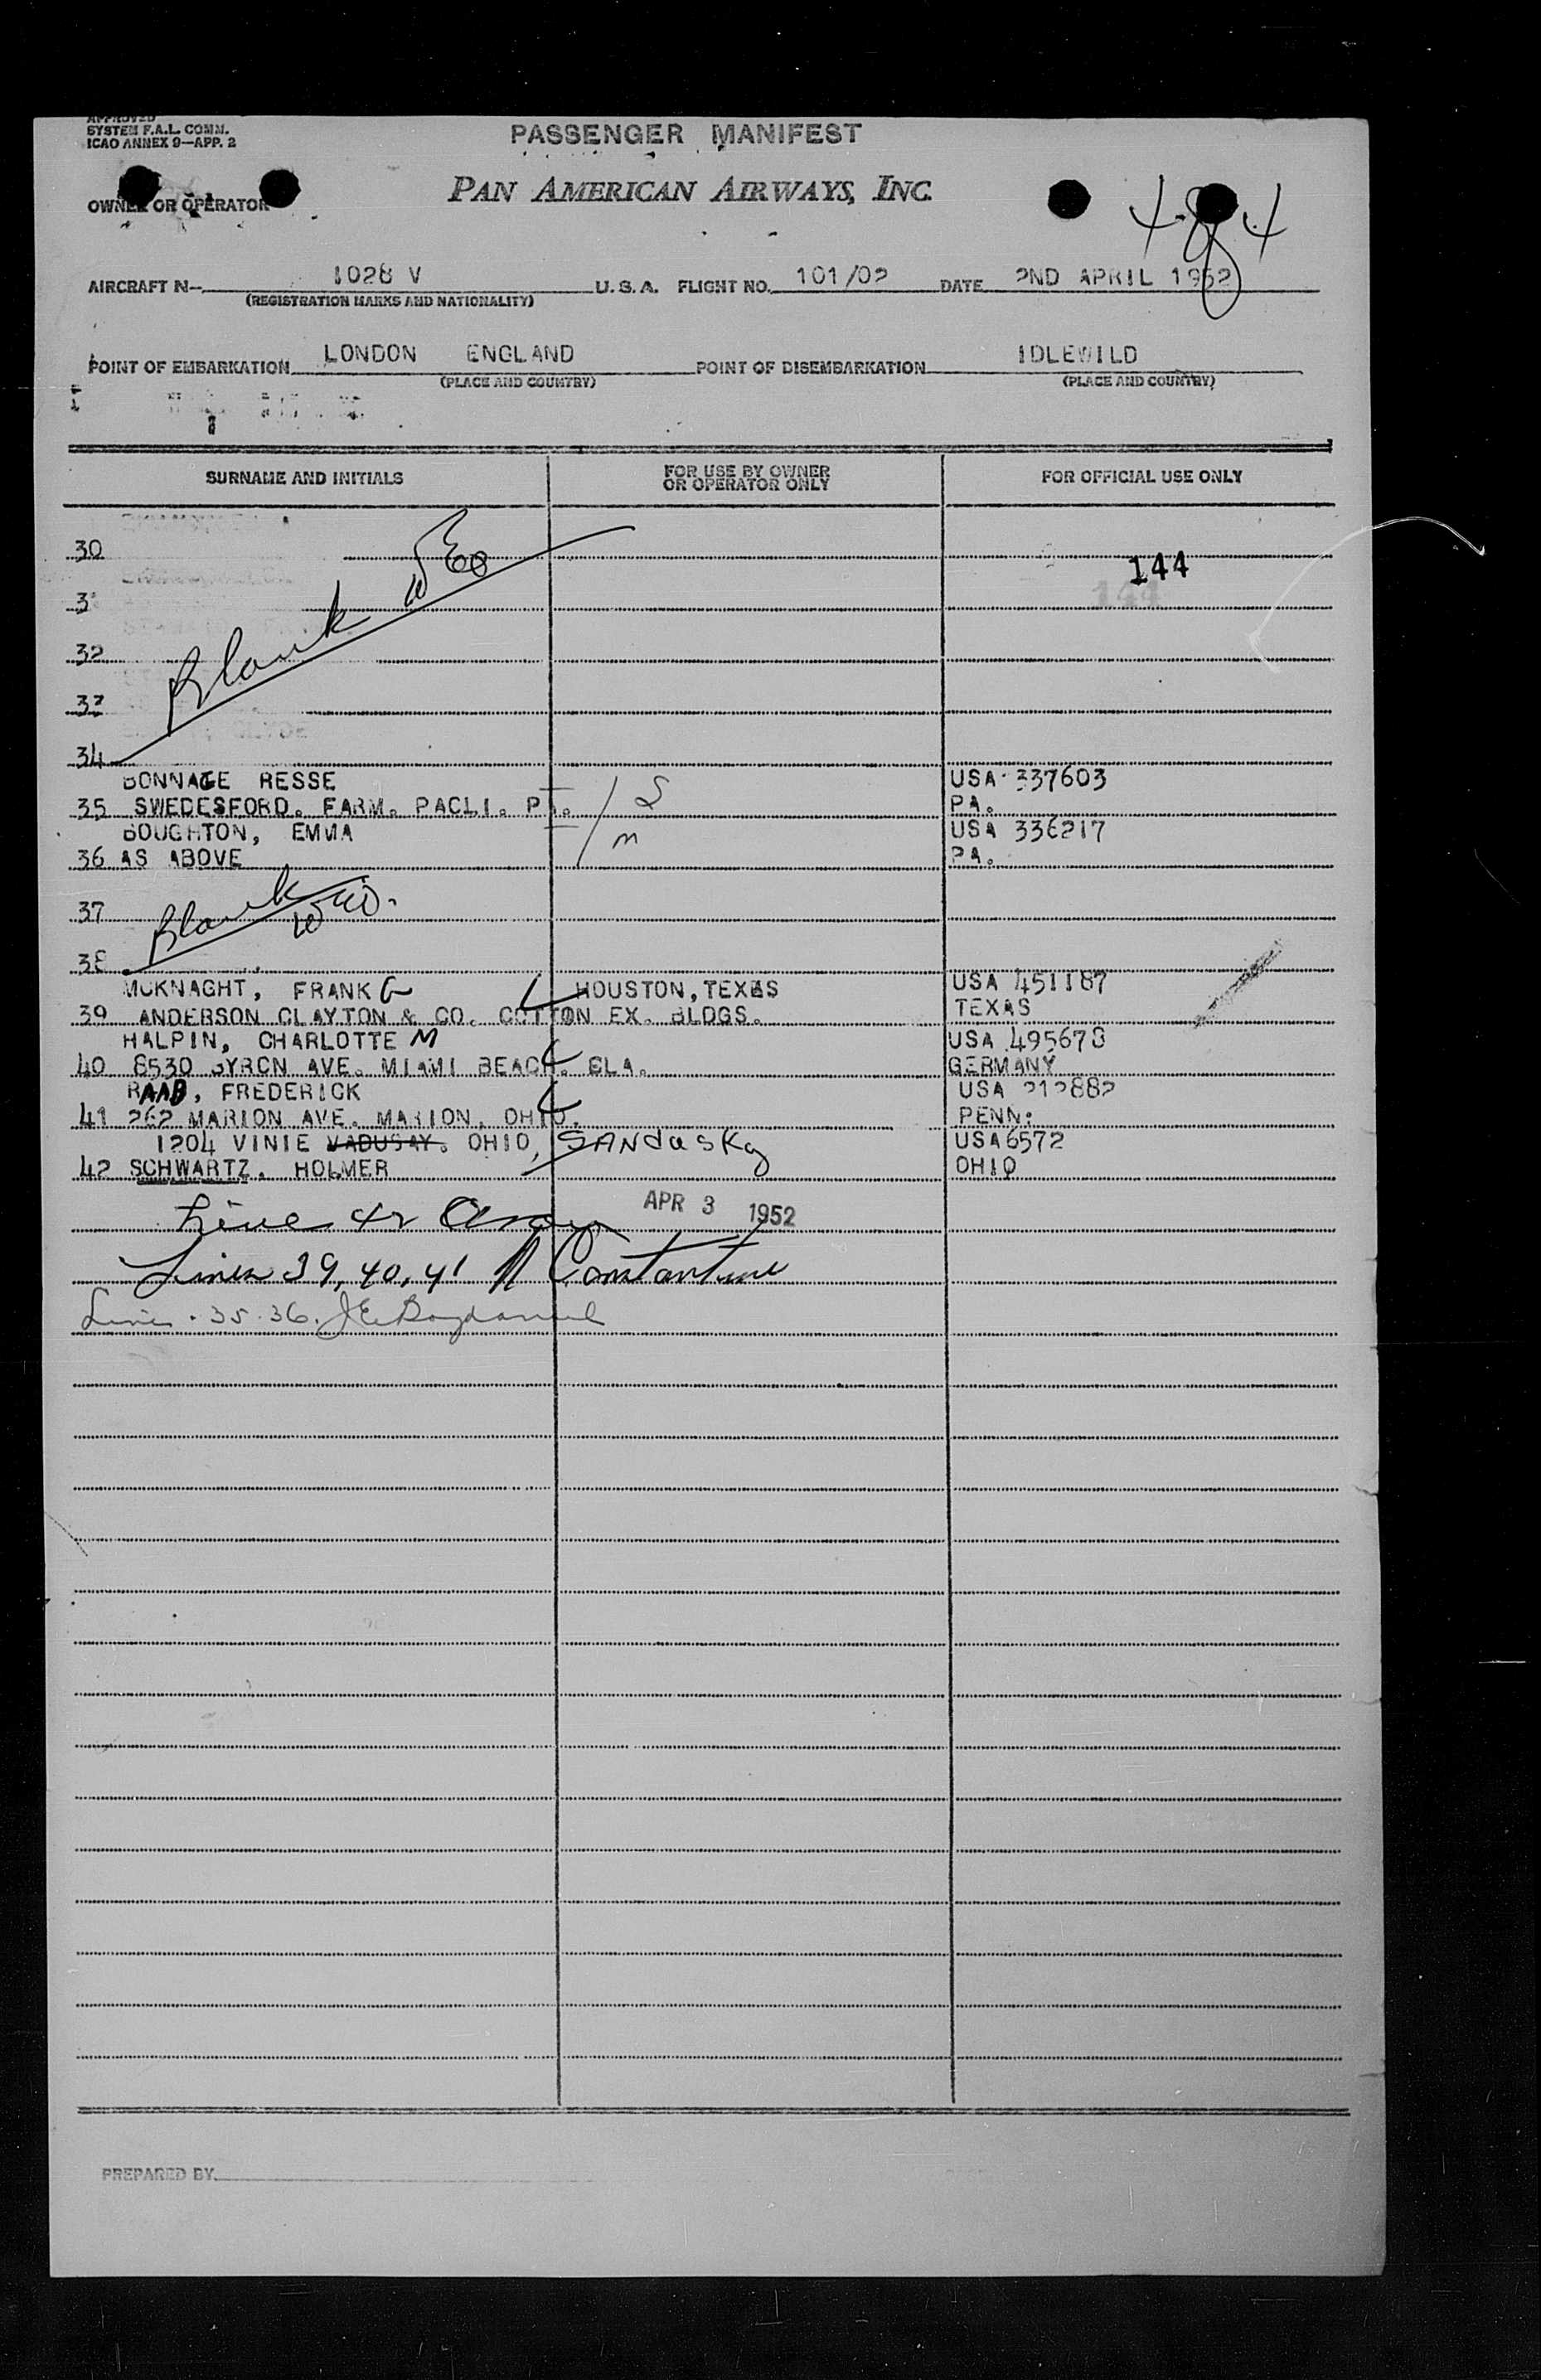 APPROVED
SYSTEM F.A.L. COMM.
ICAO ANNEX 9—APP. 2
PASSENGER MANIFEST
OWNER OR OPERATOR
PAN AMERICAN AIRWAYS, INC.
4-8-4
AIRCRAFT N— 1028 V U.S.A. FLIGHT NO. 101/02 DATE 2ND APRIL 1952
(REGISTRATION MARKS AND NATIONALITY)
POINT OF EMBARKATION LONDON ENGLAND POINT OF DISEMBARKATION IDLEWILD
(PLACE AND COUNTRY) (PLACE AND COUNTRY)
SURNAME AND INITIALS FOR USE BY OWNER OR OPERATOR ONLY FOR OFFICIAL USE ONLY
30
144
3
32
Blank
33
34
BONNAGE RESSE USA 337603
35 SWEDESFORD. FARM. PACLI. PA. S PA.
BOUGHTON, EMMA USA 336217
36 AS ABOVE m PA.
37 Blank
38
MCKNAGHT, FRANK G HOUSTON, TEXAS USA 451187
39 ANDERSON CLAYTON & CO. COTTON EX. BLDGS. TEXAS
HALPIN, CHARLOTTE M USA 495678
40 8530 BYRON AVE. MIAMI BEACH. FLA. GERMANY
RAAB, FREDERICK USA 212882
41 262 MARION AVE. MARION, OHIO. PENN:
1204 VINIE VADUSAY. OHIO, SANdusky USA 6572
42 SCHWARTZ, HOLMER OHIO
Line 42
APR 3 1952
Lines 39, 40, 41 Constantine
Lines 35.36.
PREPARED BY